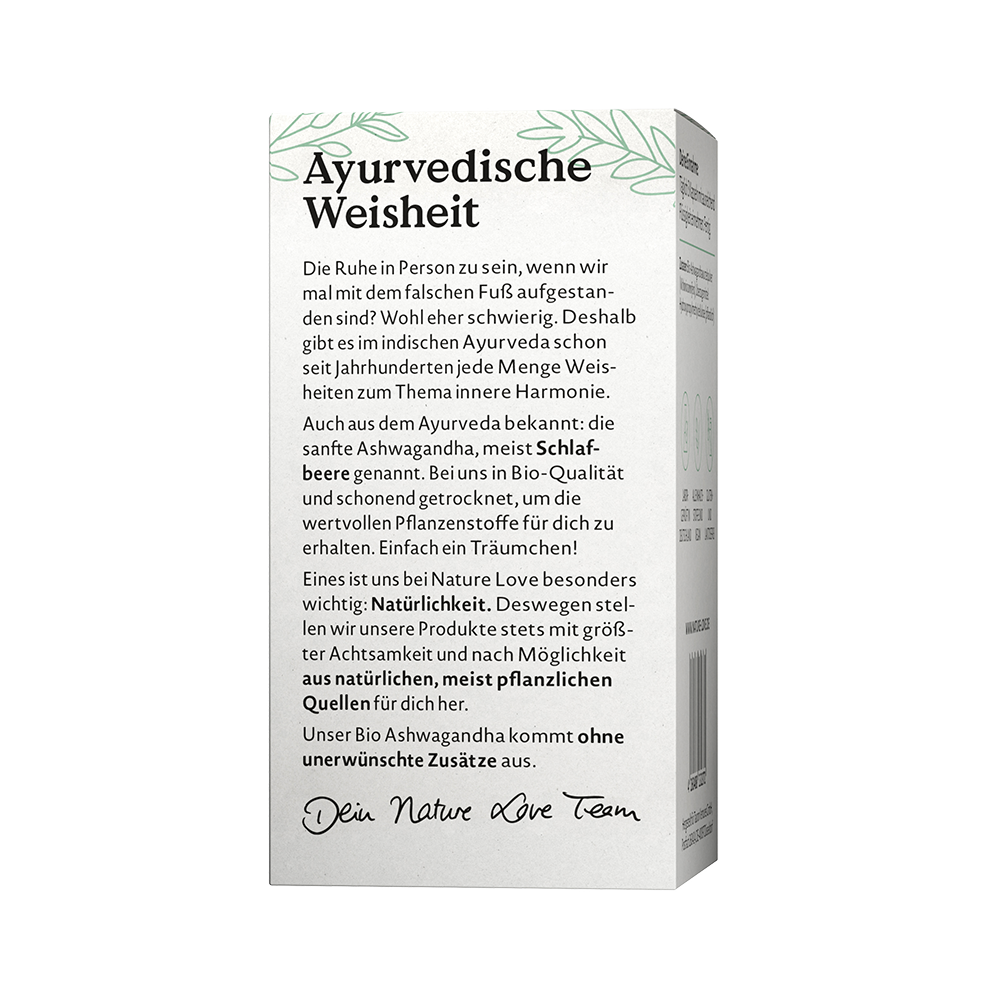 Ayurvedische
Weisheit
Die Ruhe in Person zu sein, wenn wir
mal mit dem falschen Fuß aufgestan-
den sind? Wohl eher schwierig. Deshalb
gibt es im indischen Ayurveda schon
seit Jahrhunderten jede Menge Weis-
heiten zum Thema innere Harmonie.
Auch aus dem Ayurveda bekannt: die
sanfte Ashwagandha, meist Schlaf-
beere genannt. Bei uns in Bio-Qualität
und schonend getrocknet, um die
wertvollen Pflanzenstoffe für dich zu
erhalten. Einfach ein Träumchen!
Eines ist uns bei Nature Love besonders
wichtig: Natürlichkeit. Deswegen stel-
len wir unsere Produkte stets mit größ-
ter Achtsamkeit und nach Möglichkeit
aus natürlichen, meist pflanzlichen
Quellen für dich her.
Unser Bio Ashwagandha kommt ohne
unerwünschte Zusätze aus.
Dein Nature Love Team
WWW.NATURE-LOVE.DE